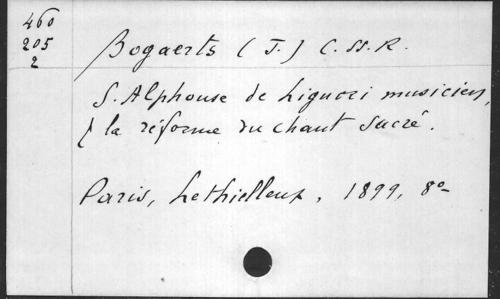 460
205
2
Bogaerts (J.) C.SS.R.
S. Alphonse de Liguori musicien,
& la réforme du chant sacré.
Paris, Lethielleux, 1899, 8º